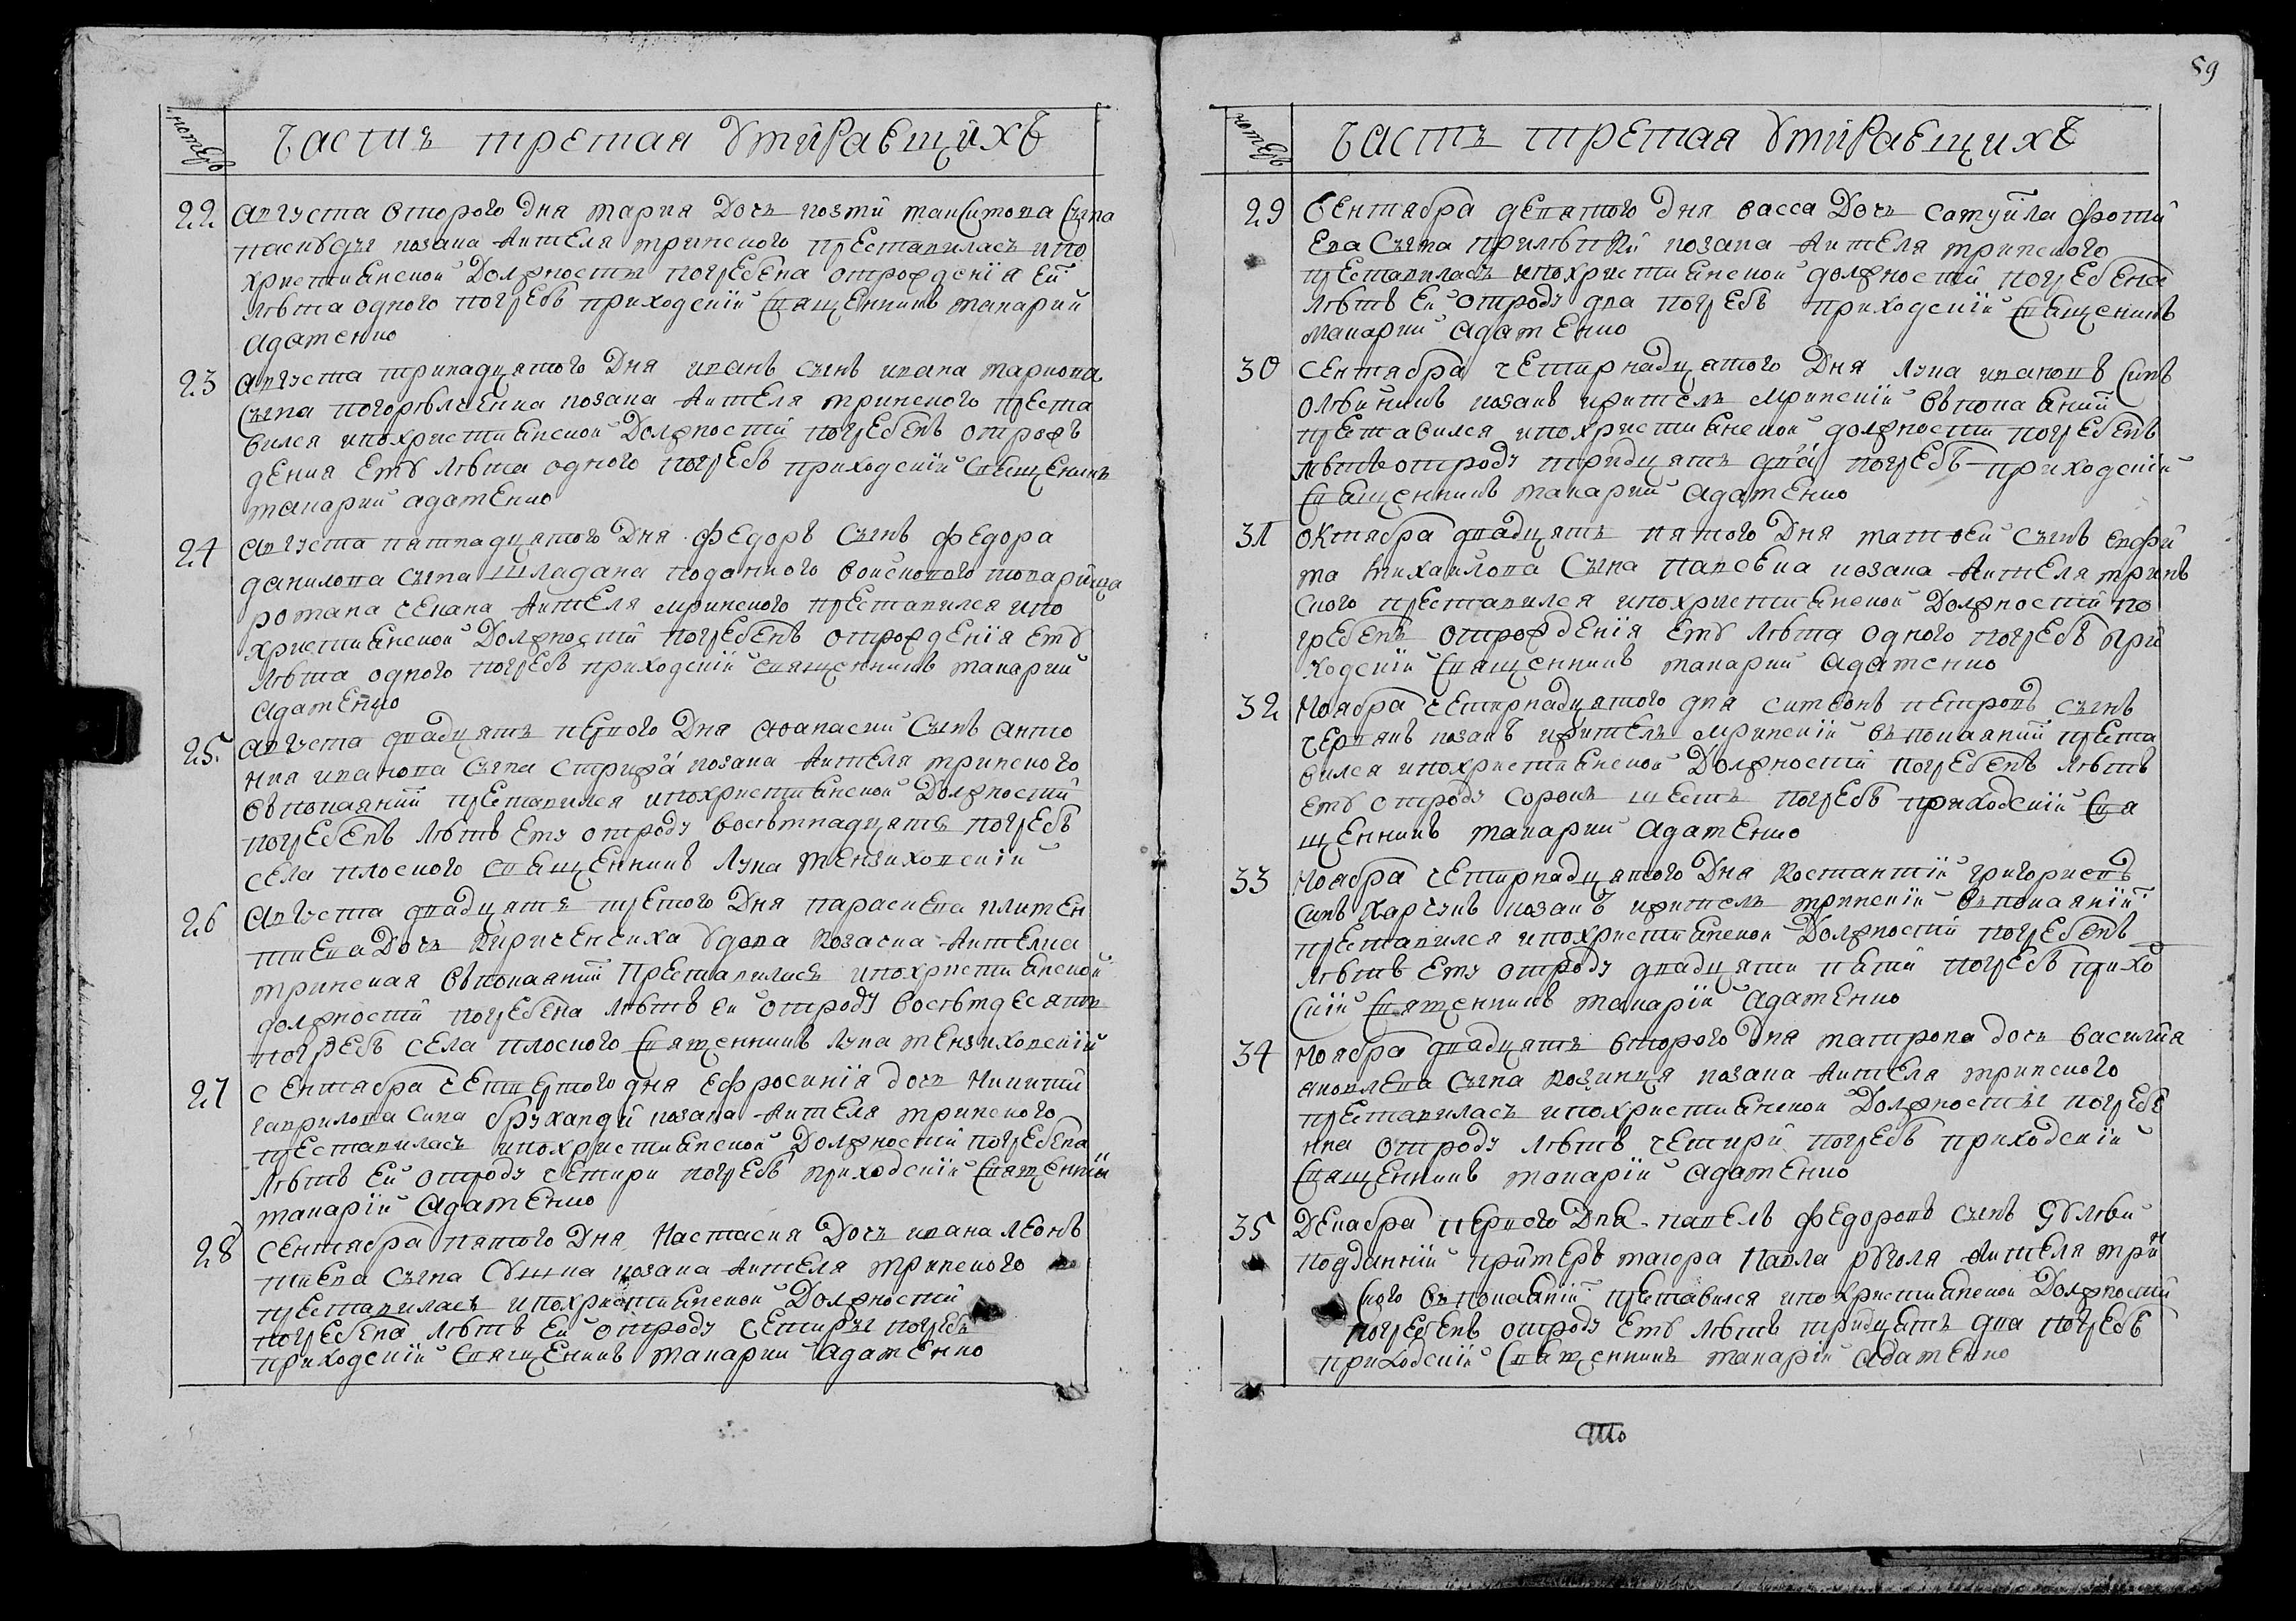 59
номеръ
Частъ третая умираещихъ
22
августа второго дня мария дочъ козми максимова сына
пасибды козака жителя мринского преставиласъ ипо
християнской должносты погребена отрождения ей
лѣта одного погребъ приходский священникъ макарий
адаменко
23
августа тринадцятого дня иванъ сынъ ивана маркова
сына погорѣлченка козака жителя мринского преста
вился ипохристиянской должности погребенъ отрож
дения ему лѣта одного погребъ приходский священикъ
макарий адаменко
24
августа пятнадцятого дня федоръ сынъ федора
данилова сына шладана поданного войскового товарища
романа чекана жителя мринского преставился ипо
християнской должности погребенъ отрождения ему
лѣта одного погребъ приходский священникъ макарий
адаменко
25
августа двадцять первого дня афанасий сынъ анто
ния иванова сына стрижа козака жителя мринского
въпокаянии преставился ипохристиянской должности
погребенъ лѣтъ ему отроду восѣмнадцять погребъ
села плоского священникъ лука мензиховский
26
августа двадцять третого дня параскева климен
тиева дочъ кириченсиха удова козачка жителка
мринская въпокаянии преставиласъ ипохристиянской
должности погребена лѣтъ ей отроду восѣмдесятъ
погребъ села плоского священникъ лука мензиховский
27
сентабра четвертого дня ефросиния дочъ никити
гаврилова сина брухандй козака жителя мринского
преставиласъ ипохристиянской должности погребена
лѣтъ ей отроду четири погребъ приходский священий
макарий адаменко
28
сентабра пятого дня настасия дочъ ивана леонъ
тиева сына козака жителя мринского
преставиласъ ипохристиянской должности
погребена лѣтъ ей отроду четыры погребъ
приходский священикъ макарий адаменко
номеръ
Частъ третая умираещихъ
29
сентабра девятого дня васса дочъ самуйла фоти
ева сына козака жителя мринского
преставиласъ ипохристиянской должности погребена
лѣтъ ей отроду два погребъ приходский священикъ
макарий адаменко
30
сентабра четирнадцятого дня лука ивановъ синъ
олѣйникъ козакъ житель мринский въпокаянии
преставился ипохристиянской должности погребенъ
лѣтъ отроду тридцять два погребъ приходский
священникъ макарий адаменко
31
октабра двадцять пятого дня матвей сынъ евфи
ма михайлова сына козака жителя мринъ
ского преставился ипохристиянской должности по
гребенъ отрождения ему лѣта одного погребъ при
ходский священникъ макарий адаменко
32
ноабра четирнадцятого дня симеонъ петровъ сынъ
чернякъ козакъ житель мринский въпокаянии преста
вился ипохристиянской должности погребенъ лѣтъ
ему отроду сорокъ шесть погребъ приходский свя
щенникъ макарий адаменко
33
ноабра четирнадцятого дня костантий григориевъ
синъ харчукъ козакъ житель мринский въпокаянии
преставился ипохристиянской должности погребенъ
лѣтъ ему отроду двадцяти пяти погребъ прихо
ский священникъ макарий адаменко
34
ноабра двадцять второго дня матрона дочъ василия
яковлева сына козинця козака жителя мринского
преставиласъ ипохристиянской должносты погребе
нна отроду лѣтъ четири погребъ приходский
священникъ макарий адаменко
35
декабра первого дня павелъ федоровъ сынъ
подданний примеръ маюра павла жителя мрин
ского въпокаянии преставился ипохристиянской должности
погребенъ отроду ему лѣтъ тридцять два погребъ
приходский священникъ макарий адаменко